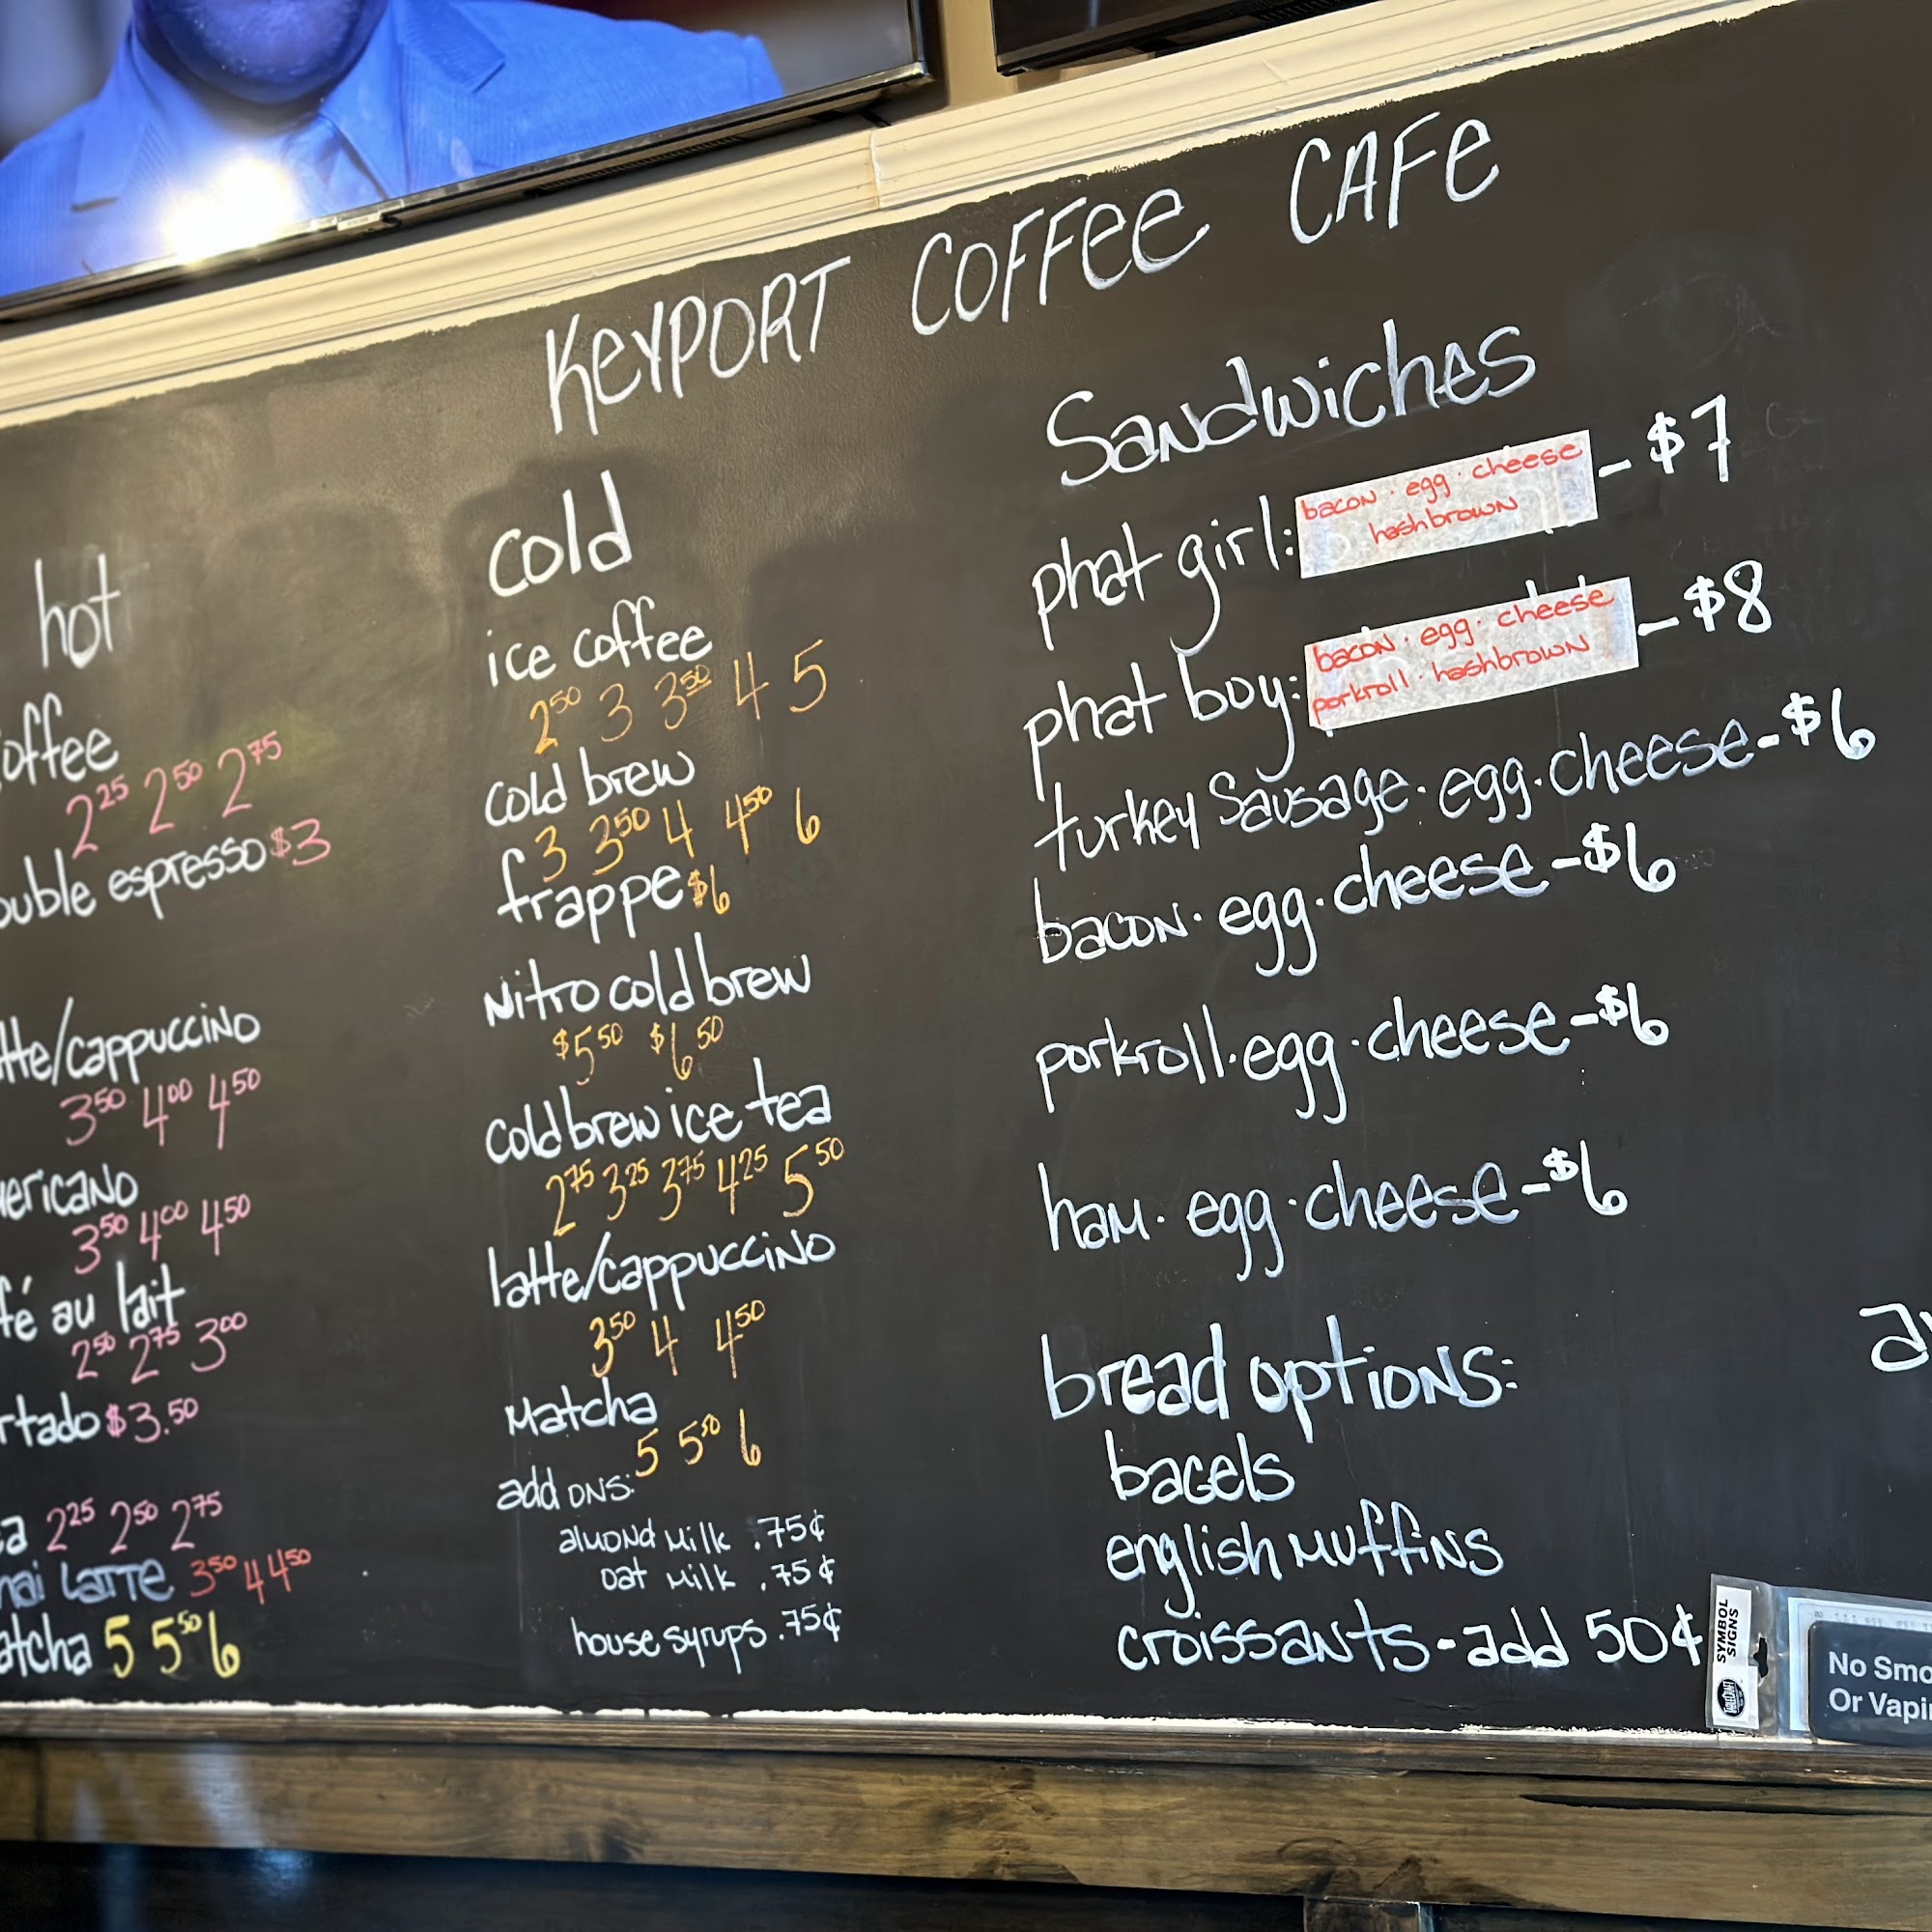 KEYPORT COFFEE CAFE
hot
offee
2.25 2.50 2.75
ouble espresso $3
tte/cappuccino
3.50 4.00 4.50
ericano
3.50 4.00 4.50
fé au lait
2.50 2.75 3.00
rtado $3.50
a 2.25 2.50 2.75
hai Latte 3.50 4 4.50
atcha 5 5.50 6
cold
ice coffee
2.50 3 3.50 4 5
cold brew
3 3.50 4 4.50 6
frappe $6
Nitro cold brew
$5.50 $6.50
cold brew ice tea
2.75 3.25 3.75 4.25 5.50
latte/cappuccino
3.50 4 4.50
Matcha
5 5.50 6
add ons:
almond milk .75¢
oat milk .75¢
house syrups .75¢
Sandwiches
phat girl: bacon · egg · cheese – $7
hashbrown
phat boy: bacon · egg · cheese – $8
porkroll · hashbrown
turkey sausage · egg · cheese - $6
bacon · egg · cheese - $6
porkroll · egg · cheese - $6
ham · egg · cheese - $6
bread options:
bagels
english muffins
croissants - add 50¢
SYMBOL
SIGNS
No Smo
Or Vapi